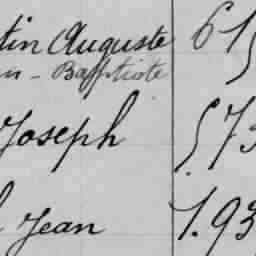 tin Auguste 61
n - Baptiste
Joseph 573
Jean 1.93